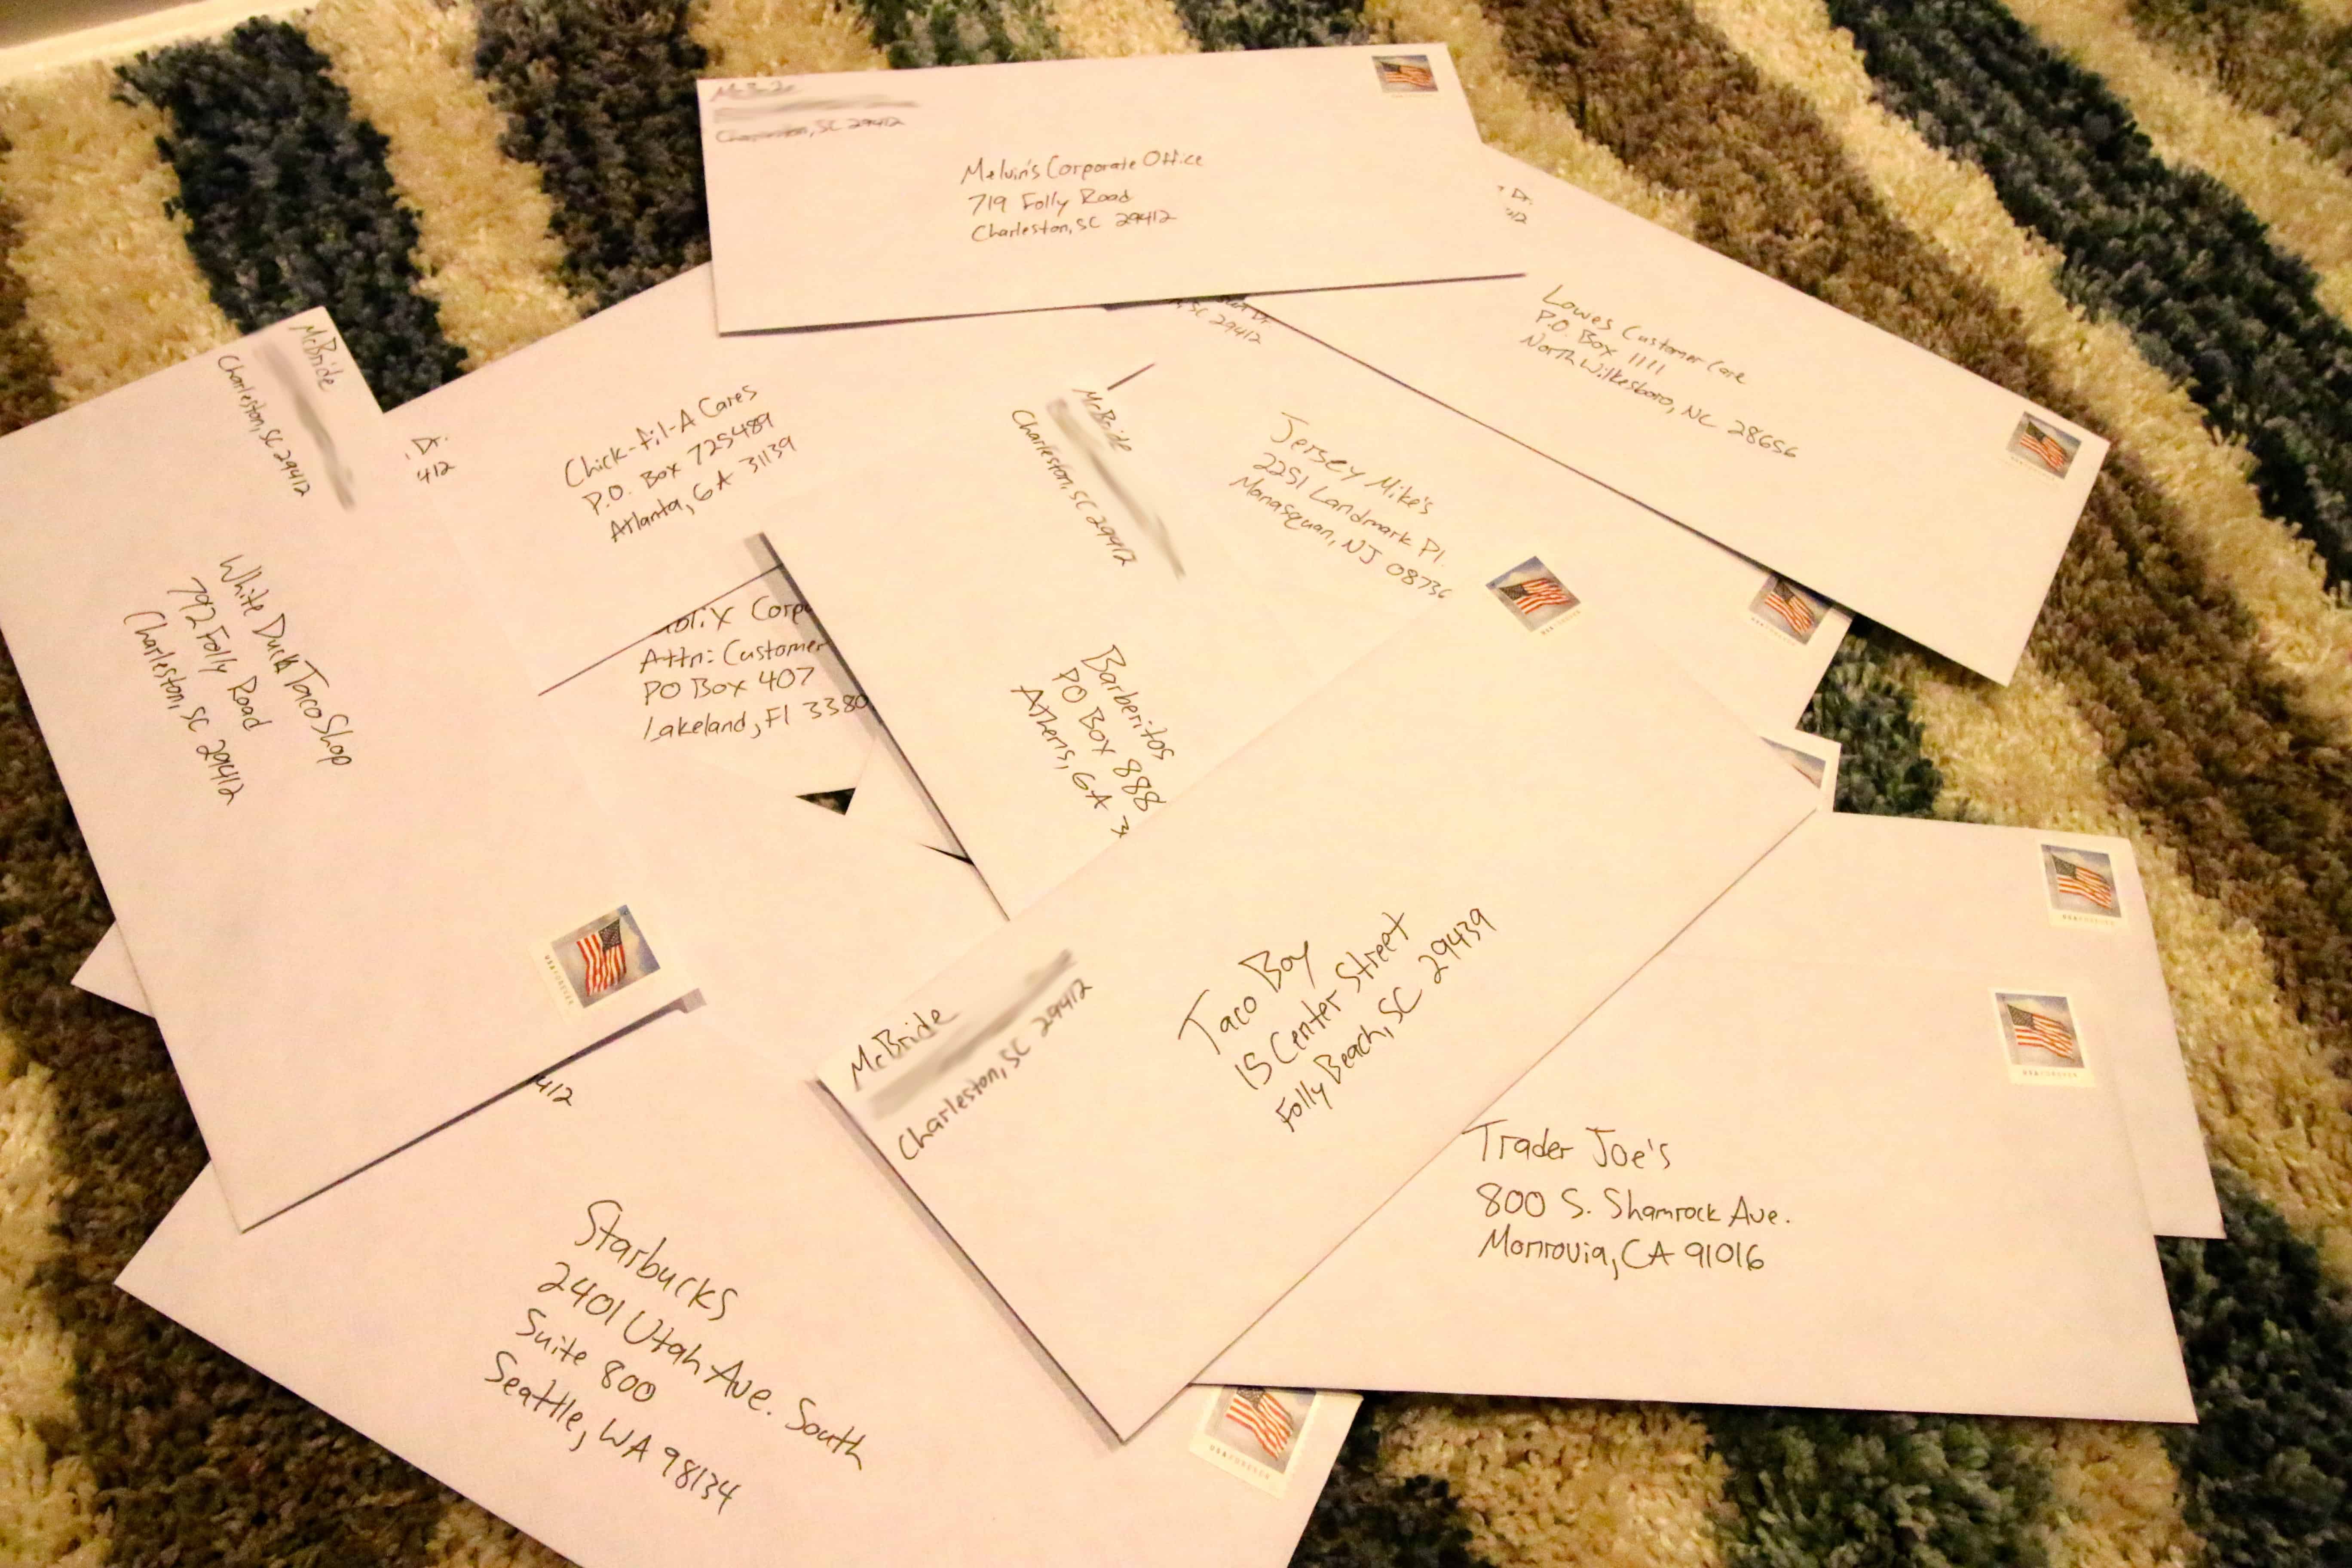 McBride
Charleston, SC 29412
Melvin's Corporate Office
719 Folly Road
Charleston, SC 29412
Dr.
412
Lowes Customer Care
P.O. Box 1111
North Wilkesboro, NC 28656
McBride
Charleston, SC 29412
White Duck Taco Shop
792 Folly Road
Charleston, SC 29412
USA FOREVER
Dr.
412
Chick-fil-A Cares
P.O. Box 725489
Atlanta, GA 31139
Attn: Customer
PO Box 407
Lakeland, Fl 3380
Dr
, SC 29412
Jersey Mike's
2251 Landmark Pl.
Manasquan, NJ 08736
McBride
Charleston, SC 29412
Barberitos
PO Box 888
Athens, GA 3
McBride
Charleston, SC 29412
Taco Boy
15 Center Street
Folly Beach, SC 29439
USA FOREVER
Trader Joe's
800 S. Shamrock Ave.
Monrovia, CA 91016
USA FOREVER
412
Starbucks
2401 Utah Ave. South
Suite 800
Seattle, WA 98134
USA FOREVER